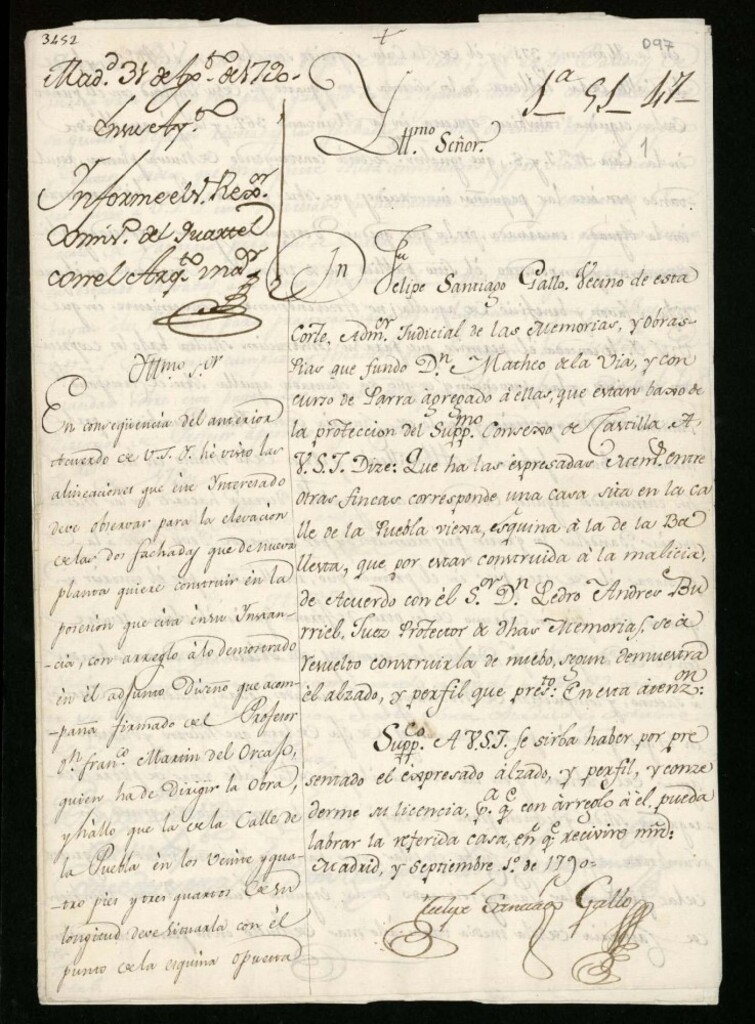 3452
097
1ª 51 47
1
Mad.d 31 de Ag.to de 1790.
En su Ay.to
Informe el S. Rex.or
Comis.o del quartel
con el Arq.to m.or
Ill.mo S.or
En conseqüencia del anterior
Acuerdo de V.S.Y. hè visto las
alineaciones que ese Ynteresado
deve observar para la elevacion
de las dos fachadas que de nueva
planta quiere construir en la
posesion que cita en su Ynstan-
-cia, con arreglo à lo demostrado
en el adjunto Diseño que acom-
-paña firmado del Profesor
Fran.co Martin del Orcajo,
quien ha de dirigir la Obra,
y hallo que la de la Calle de
la Puebla en los Veinte y qua-
tro pies y tres quartos de su
longitud deve situarla con el
punto de la esquina opuesta
Ill.mo Señor.
Felipe Santiago Gallo. Vecino de esta
Corte, Adm.or Judicial de las Memorias, y Obras
Pias que fundo D.n Matheo de la Via, y con
curso de Parra agregado à ellas, que estan baxo de
la proteccion del Supp.mo Consexo de Castilla. A
V.S.I. Dize: Que ha las expresadas Mem.s entre
otras fincas corresponde una casa sita en la ca
lle de la Puebla viexa, esquina à la de la Ba
llesta, que por estar construida à la malicia,
de Acuerdo con èl S.or D.n Pedro Andres Bu
rriel. Juez Protector de dhas Memorias, se à
resuelto construirla de nuebo, segun demuestra
èl alzado, y perfil que pres.to: En esta atenz.on:
Supp.co A V.S.I. se sirba haber por pre
sentado el èxpresado alzado, y perfil, y conze
derme su licencia, p.a q.e con àrreglo à èl pueda
labrar la referida casa, en q.e recivirè mrd:
Madrid, y Septiembre 1º. de 1790=
Felipe Santiago Gallo